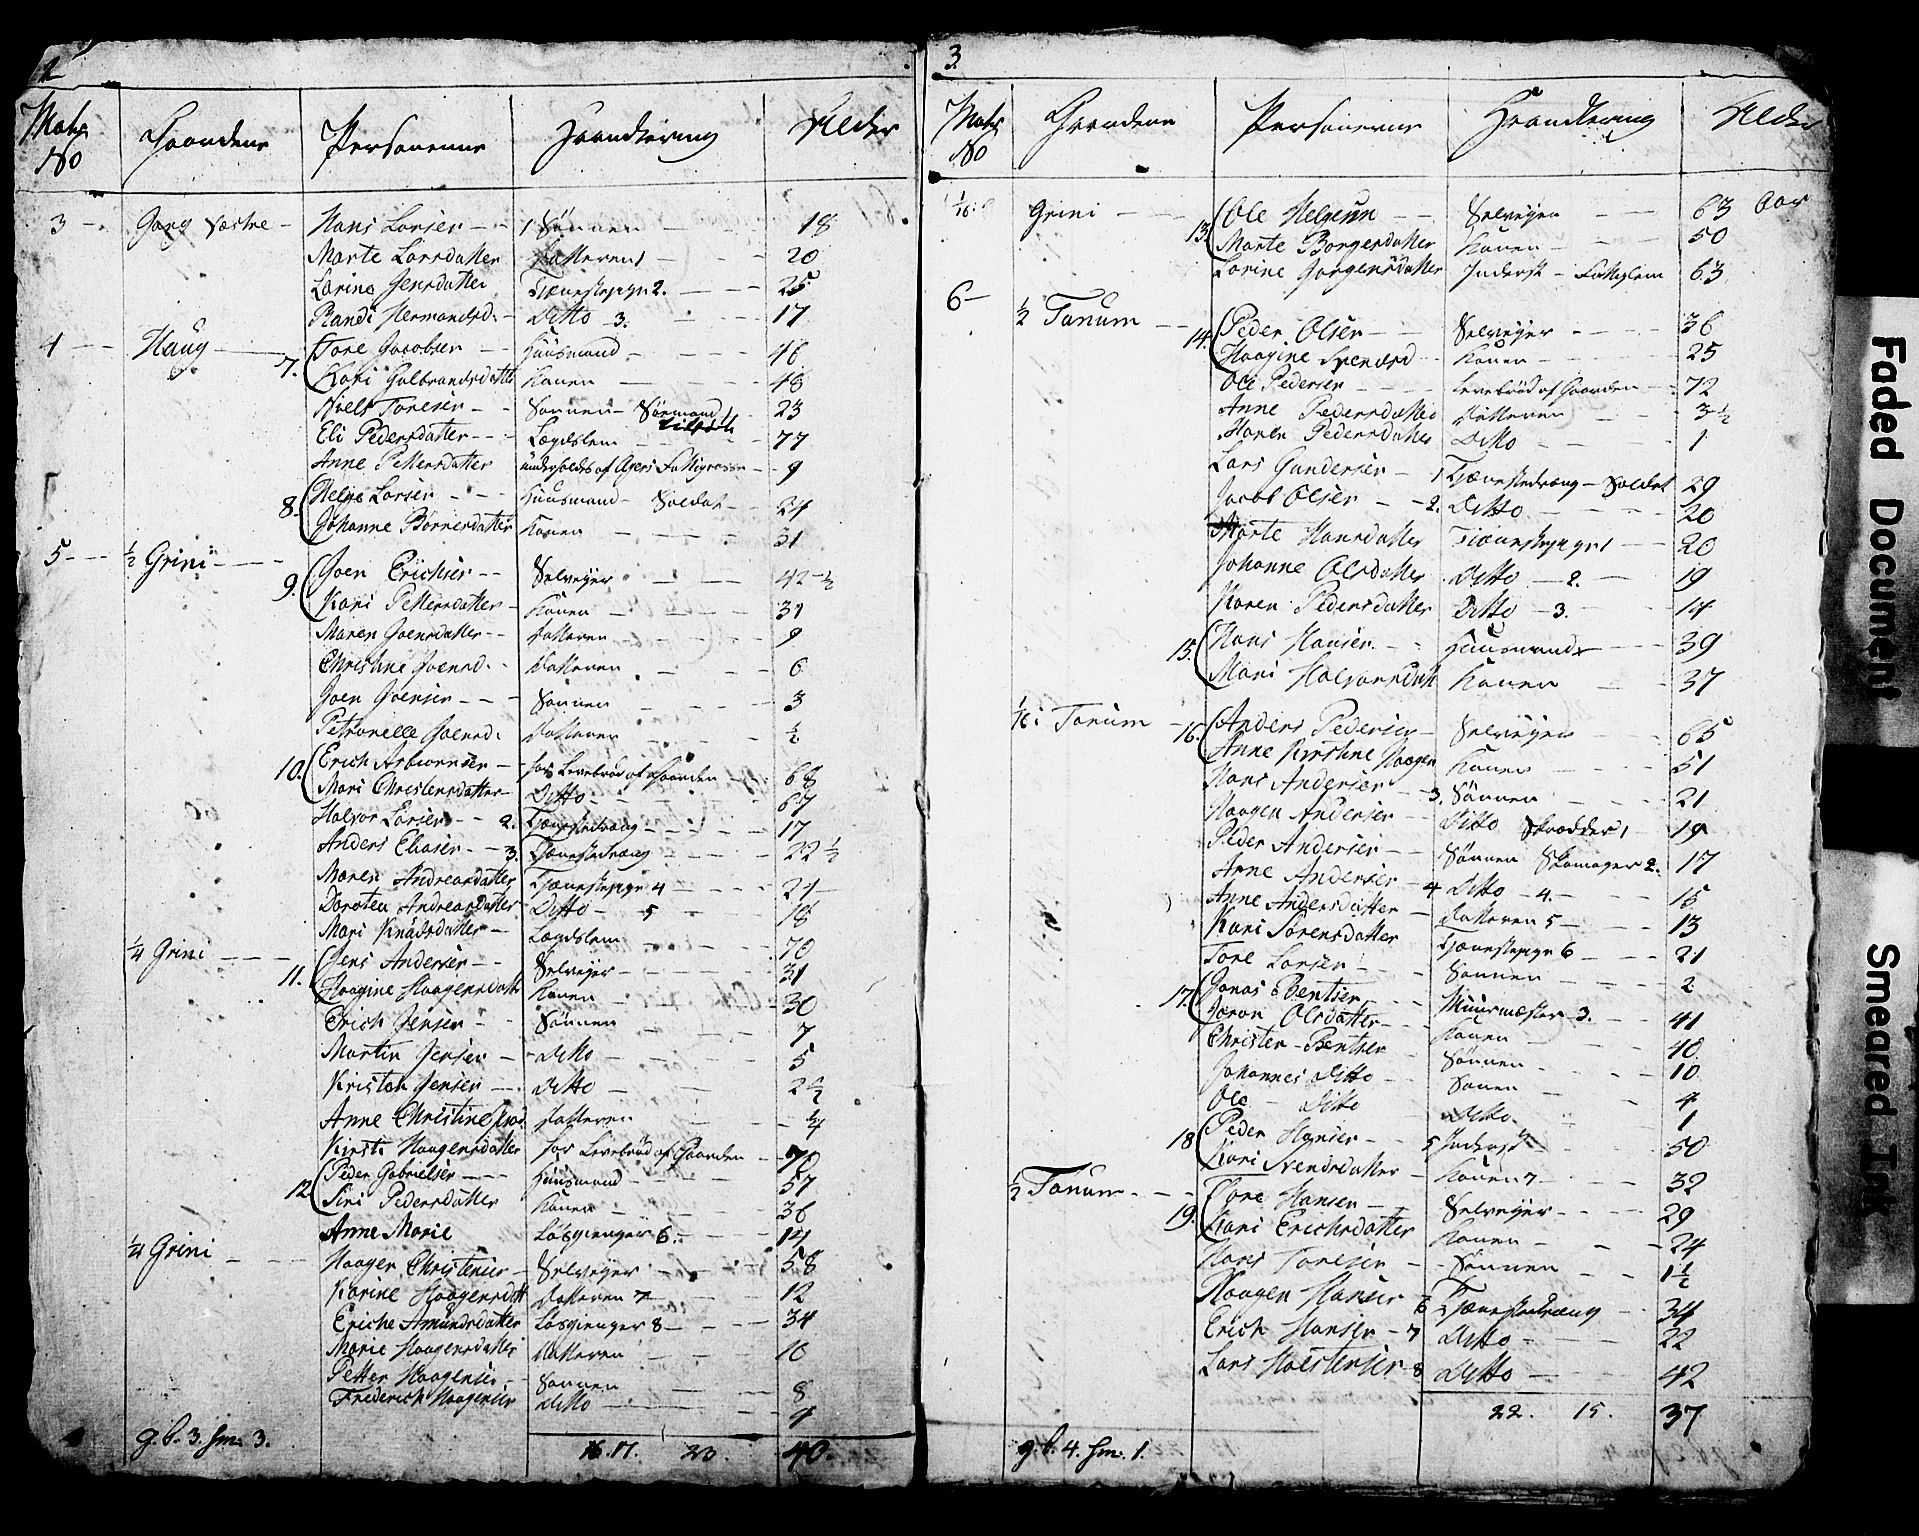 2
Matr No Gaardene Personerne Haandtering Alder
3 Gary Næstre Hans Larsen 1 Sønnen 18
Marte Larsdatter Datteren 1 20
Larine Jensdatter Tjenestepige 2. 25
Randi Hermandsd. Ditto 3. 17
4 Haug 7. Tore Jacobsen Huusmand 46
Kari Gulbrandsdatter Konen 48
Niels Toresen Sønnen Sømand tilsøes 23
Eli Pedersdatter Lægdslem 77
Anne Pettersdatter underholdes af Agers Fattigcasse 9
8. Helge Larsen Huusmand Soldat 24
Johanne Børresdatter Konen 31
5 1/2 Grini 9. Joen Erichsen Selveyer 42 1/2
Kari Pettersdatter Konen 31
Maren Joensdatter Datteren 9
Christine Joensd. Datteren 6
Joen Joensen Sønnen 3
Petronelle Joensd. Datteren 1/2
10. Erich Asbiørnsen har Levebrød af Gaarden 68
Mari Christensdatter Ditto 67
Halvor Larsen 2. Tjenestedreng 17
Anders Eliasen 3. Tjenestedreng 22 1/2
Maren Andreasdatter Tjenestepige 4 24
Dorotea Andreasdatter Ditto 5 18
Mari Knudsdatter Lægdslem 70
1/4 Grini 11. Jens Andersen Selveyer 31
Haagine Haagensdatter Konen 30
Erich Jensen Sønnen 7
Martin Jensen Ditto 5
Kristen Jensen Ditto 2 1/2
Anne Christine Datteren 1/4
Kirsti Haagensdatter har Levebrød af Gaarden 70
12 Peder Gabrielsen Huusmand 57
Siri Pedersdatter Konen 36
Anne Marie Løsgienger 6. 14
1/4 Grini Haagen Christensen Selveyer 58
Karine Haagensdatt Datteren 7 12
Eriche Amundsdatter Løsgienger 8 34
Marie Haagensdatter Datteren 10
Petter Haagensen Sønnen 8
Friderich Haagensen Ditto 4
g.b. 3. hm. 3. 16. 17. 23. 40.
3.
Matr No Gaardene Personerne Haandtering Alder
1/16 Grini 13. Ole Helgesen Selveyer 63 Aar
Marte Borgersdatter Konen 50
Larine Jørgensdatter Inderst Fattiglem 63
6 1/2 Tanum 14. Peder Olsen Selveyer 36
Haagine Svendsd Konen 25
Ole Pedersen Levebrød af Gaarden 72
Anne Pedersdatter Datteren 3 1/2
Maren Pedersdatter Ditto 1
Lars Gundersen 1 Tjenestedreng Soldat 29
Jacob Olsen 2. Ditto 20
Marte Hansdatter Tienestepige 1 20
Johanne Olsdatter Ditto 2. 19
Karen Pedersdatter Ditto 3. 14
15. Hans Hansen Huusmand 39
Mari Halvorsdatt Konen 37
1/16 Tanum 16. Anders Pedersen Selveyer 65
Anne Kirstine Haagen Konen 51
Hans Andersen 3. Sønnen 21
Haagen Andersen Ditto Skrædder 1 19
Peder Andersen Sønnen Skomager 2. 17
Arne Andersen 4 Ditto 4. 15
Anne Andersdatter Datteren 5 13
Kari Sørensdatter Tjenestepige 6 21
Tore Larsen Sønnen 2
17. Jonas Bentsen Muurmæster 3. 41
Jøran Olsdatter Konen 40
Christen Bentsen Sønnen 10
Johannes Ditto Sønen 4
Ole Ditto Ditto 1
18 Peder Hansen 5 Inderst 50
Kari Svendsdatter Konen 7 32
1/2 Tanum 19. Tore Hansen Selveyer 29
Kari Erichsdatter Konen 24
Hans Toresen Sønnen 1 1/2
Haagen Hansen 6 Tjenestedreng 34
Erich Hansen 7 Ditto 22
Lars Halstensen 8 Ditto 42
g.b. 4. hm. 1. 22. 15. 37
Faded Document
Smeared Ink